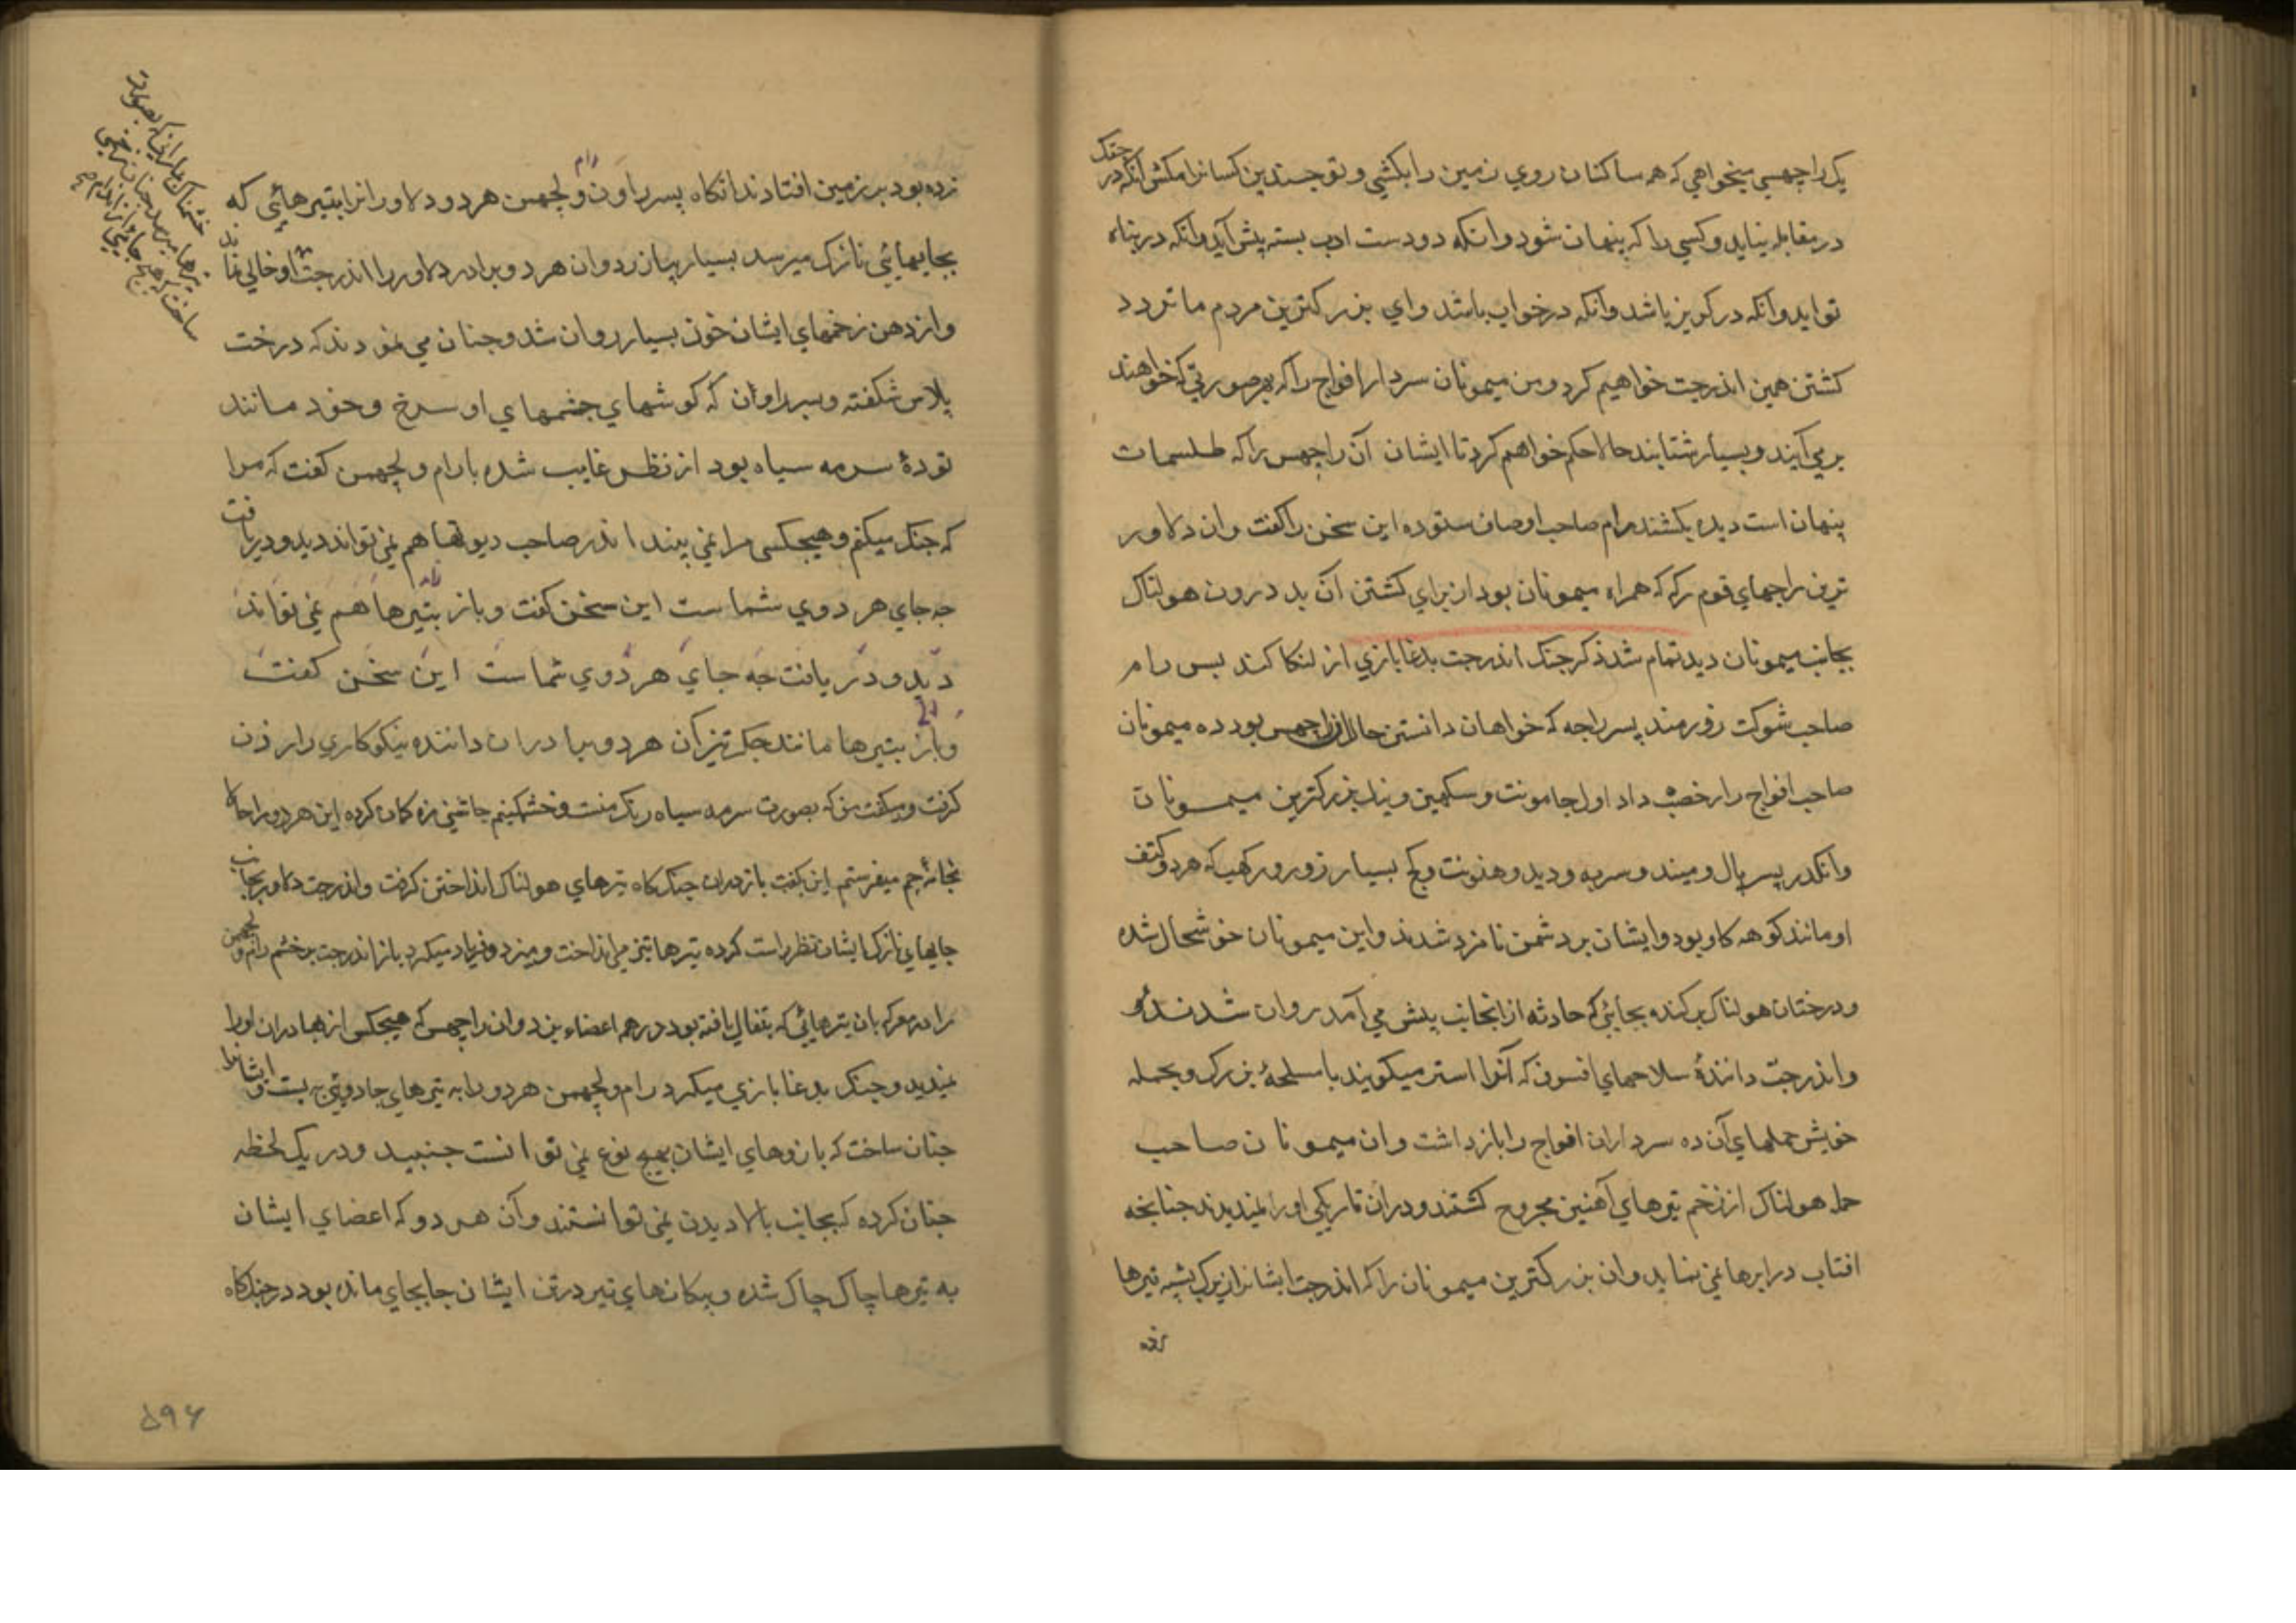 یک راچهسی میخواهی که همه ساکنان روی زمین را بکشی و تو چندین کسانرا مکش آنکه در جنک
در مقابله نیاید و کسی را که پنهان شود و انکه دو دست ادب بسته پیش آید و آنکه در پناه
تو اید و آنکه در کریز باشد و آنکه در خواب باشد و ای بزرکترین مردم ما تردد
کشتن همین اندرجت خواهیم کرد و من میمونان سردار افواج را که بهر صورتی که خواهند
بر می آیند و بسیار شتابند حالا حکم خواهم کرد تا ایشان آن راچهس را که طلسمات
پنهان است دیده بکشند رام صاحب اوصاف ستوده این سخن را کفت و ان دلاور
ترین راجهای قوم رکه که همراه میمونان بود از برای کشتن آن بد درون هولناک
بجانب میمونان دید تمام شد ذکر جنک اندرجت بدغا بازی از لنکا کند پس رام
صاحب شوکت زورمند پسر راجه که خواهان دانستن حال ان راچهس بود ده میمونان
صاحب افواج را رخصت داد اول جامونت و سکهین و نیل بزرکترین میمونان
وانکد پسر بال و میند و سربه و دبد و هنونت و کج بسیار زور و رکهب که هر دو کتف
او مانند کوهه کاو بود و ایشان بر دشمن نامزد شدند و این میمونان خوشحال شده
و درختان هولناک بر کنده بجائی که حادثه از انجانب پیش می آمد روان شدند و
و اندرجت دانندهٔ سلاحهای افسون که آنرا استر میکویند با سلحهٔ بزرک و بجمله
خویش حملهای آن ده سرداران افواج را باز داشت و ان میمونان صاحب
حمله هولناک از زخم تیرهای آهنین مجروح کشتند و دران تاریکی او را نمیدیدند چنانچه
افتاب در ابرها نمی نماید و ان بزرکترین میمونان را که اندرجت ایشانرا تیرها
زده
زده بود بر زمین افتادند انکاه پسر راون رام و لچهمن هر دو دلاور انرا بتیرهائی که
بجایهائی نازک میرسد بسیار بیان زد و ان هر دو برادر دلاور را اندرجت او خالی نماند
و از دهن زخمهای ایشان خون بسیار روان شد و چنان می نمودند که درخت
پلاس شکفته و پسر راون که کوشهای چشمهای او سرخ و خود مانند
تودهٔ سرمه سیاه بود از نظر غایب شده با رام و لچهمن کفت که مرا
که جنک میکنم و هیچکس مرا نمی بیند اندر صاحب دیوتها هم نمی تواند دید و دریافت
چه جای هر دوی شما ست این سخن کفت و باز بتیرها هم نمی تواند
دید و در یافت چه جای هر دوی شما ست این سخن کفت
و باز بتیرها مانند جکر تیز آن هر دو برادران داننده نیکوکاری را زدن
کرفت و میکفت من که بصورت سرمه سیاه رنک منست و خشمکینم چاشنی زه کمان کرده این هر دو را حالا
بخانهٔ جم میفرستم این بکفت باز دران جنک کاه تیرهای هولناک انداختن کرفت و اندرجت دلاور بجانب
جایهای نازک ایشان نظر راست کرده تیرها تیز می انداخت و میزد و فریاد میکرد باز اندرجت بر خشم رام و لچهمن
را در معرکه بان تیرهائی که بتفال یافته بود در همه اعضاء بزد و ان راچهس که هیچکس از بهادران او را
نمیدید و جنک بدغا بازی میکرد رام و لچهمن هر دو را به تیرهای جادوئی بست و ایشانرا
چنان ساخت که بازوهای ایشان بهیچ نوع نمی توانست جنبید و در یک لحظه
چنان کرده که بجانب بالا دیدن نمی توانستند و آن هر دو که اعضای ایشان
به تیرها چاک چاک شده و پیکان های تیر در تن ایشان جابجای مانده بود در جنک کاه
۵۹۶